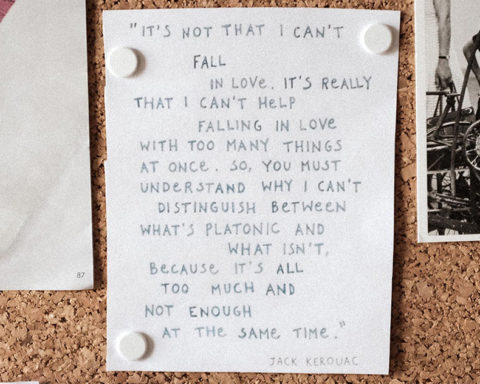 "IT'S NOT THAT I CAN'T
FALL
IN LOVE. IT'S REALLY
THAT I CAN'T HELP
FALLING IN LOVE
WITH TOO MANY THINGS
AT ONCE. SO, YOU MUST
UNDERSTAND WHY I CAN'T
DISTINGUISH BETWEEN
WHAT'S PLATONIC AND
WHAT ISN'T,
BECAUSE IT'S ALL
TOO MUCH AND
NOT ENOUGH
AT THE SAME TIME."
JACK KEROUAC
87